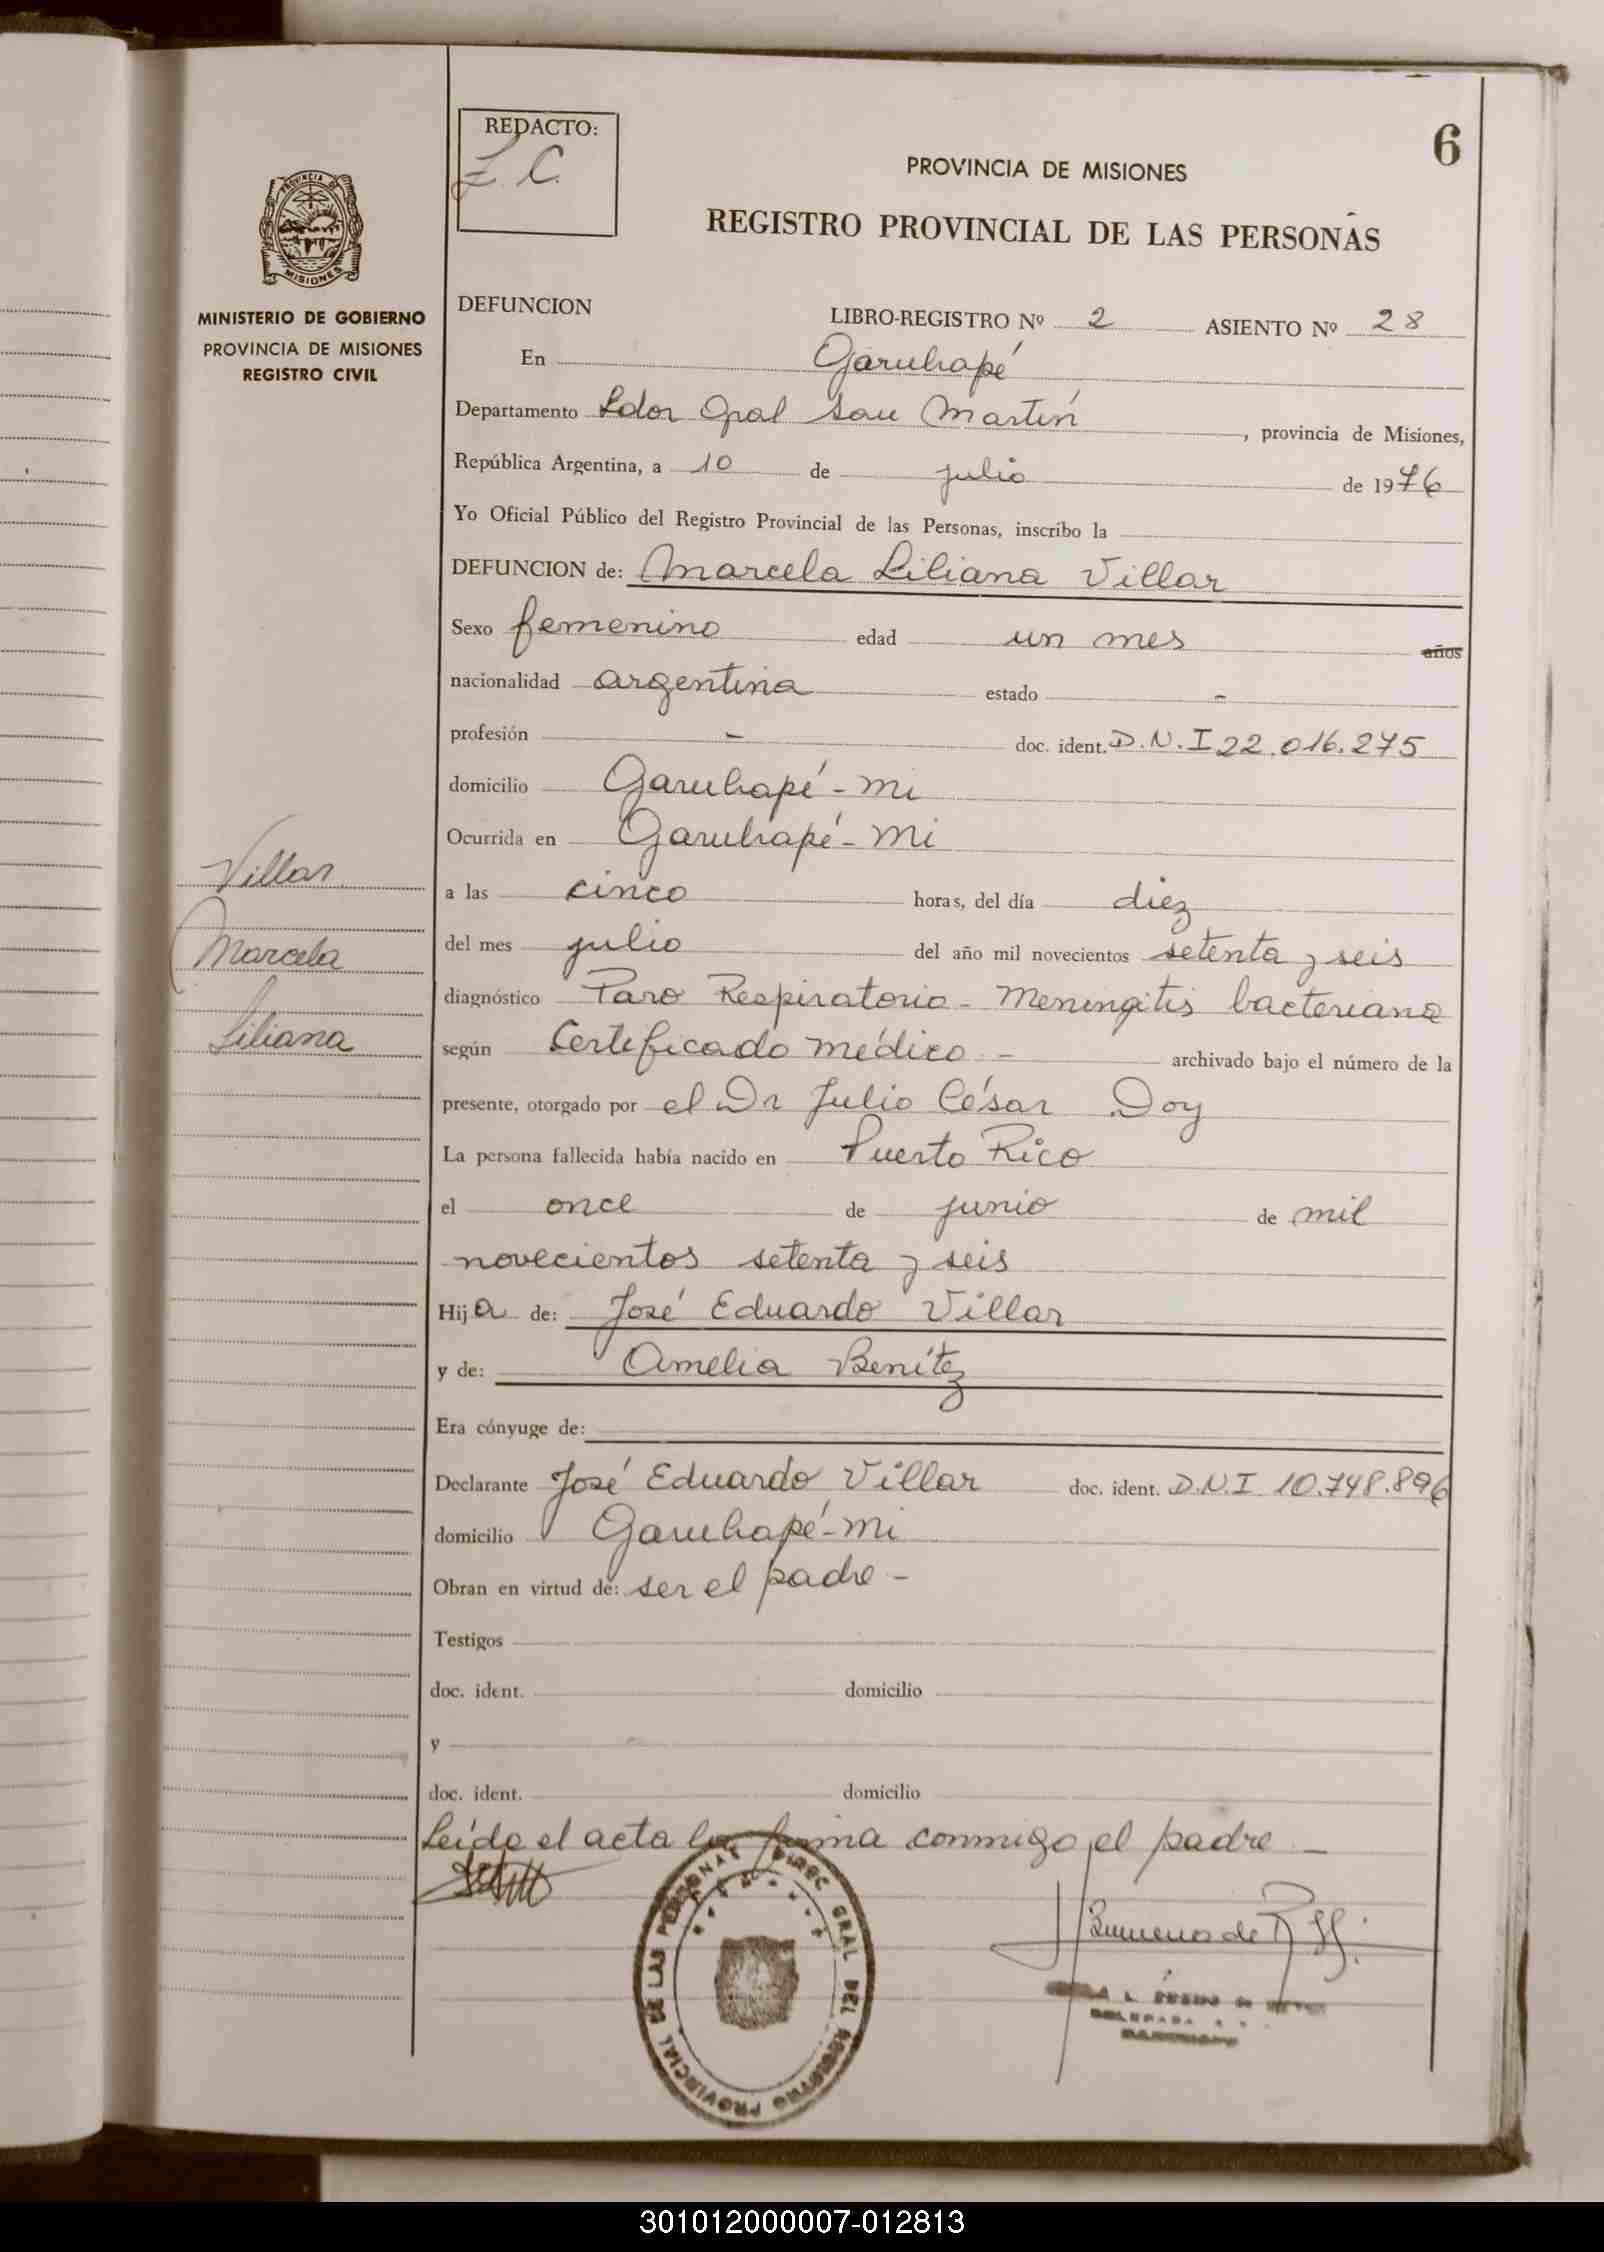 REDACTO:
Z. C.
6
PROVINCIA DE MISIONES
REGISTRO PROVINCIAL DE LAS PERSONAS
PROVINCIA DE
MISIONES
MINISTERIO DE GOBIERNO
PROVINCIA DE MISIONES
REGISTRO CIVIL
DEFUNCION
LIBRO-REGISTRO Nº 2 ASIENTO Nº 28
En Garuhapé
Departamento Ldor Gral San Martín, provincia de Misiones,
República Argentina, a 10 de julio de 1976
Yo Oficial Público del Registro Provincial de las Personas, inscribo la
DEFUNCION de: Marcela Liliana Villar
Sexo femenino edad un mes años
nacionalidad argentina estado -
profesión - doc. ident. D.N.I 22.016.275
domicilio Garuhapé - Mi
Ocurrida en Garuhapé - Mi
Villar
Marcela
Liliana
a las cinco horas, del día diez
del mes julio del año mil novecientos setenta y seis
diagnóstico Paro Respiratorio - Meningitis bacteriana
según Certificado médico - archivado bajo el número de la
presente, otorgado por el Dr Julio César Doy
La persona fallecida había nacido en Puerto Rico
el once de junio de mil
novecientos setenta y seis
Hija de: José Eduardo Villar
y de: Amelia Benítez
Era cónyuge de:
Declarante José Eduardo Villar doc. ident. D.N.I 10.748.896
domicilio Garuhapé - Mi
Obran en virtud de: ser el padre -
Testigos
doc. ident. domicilio
y
doc. ident. domicilio
Leída el acta la firma conmigo el padre -
DIREC. GRAL DEL REGISTRO PROVINCIAL DE LAS PERSONAS
DELEGADA